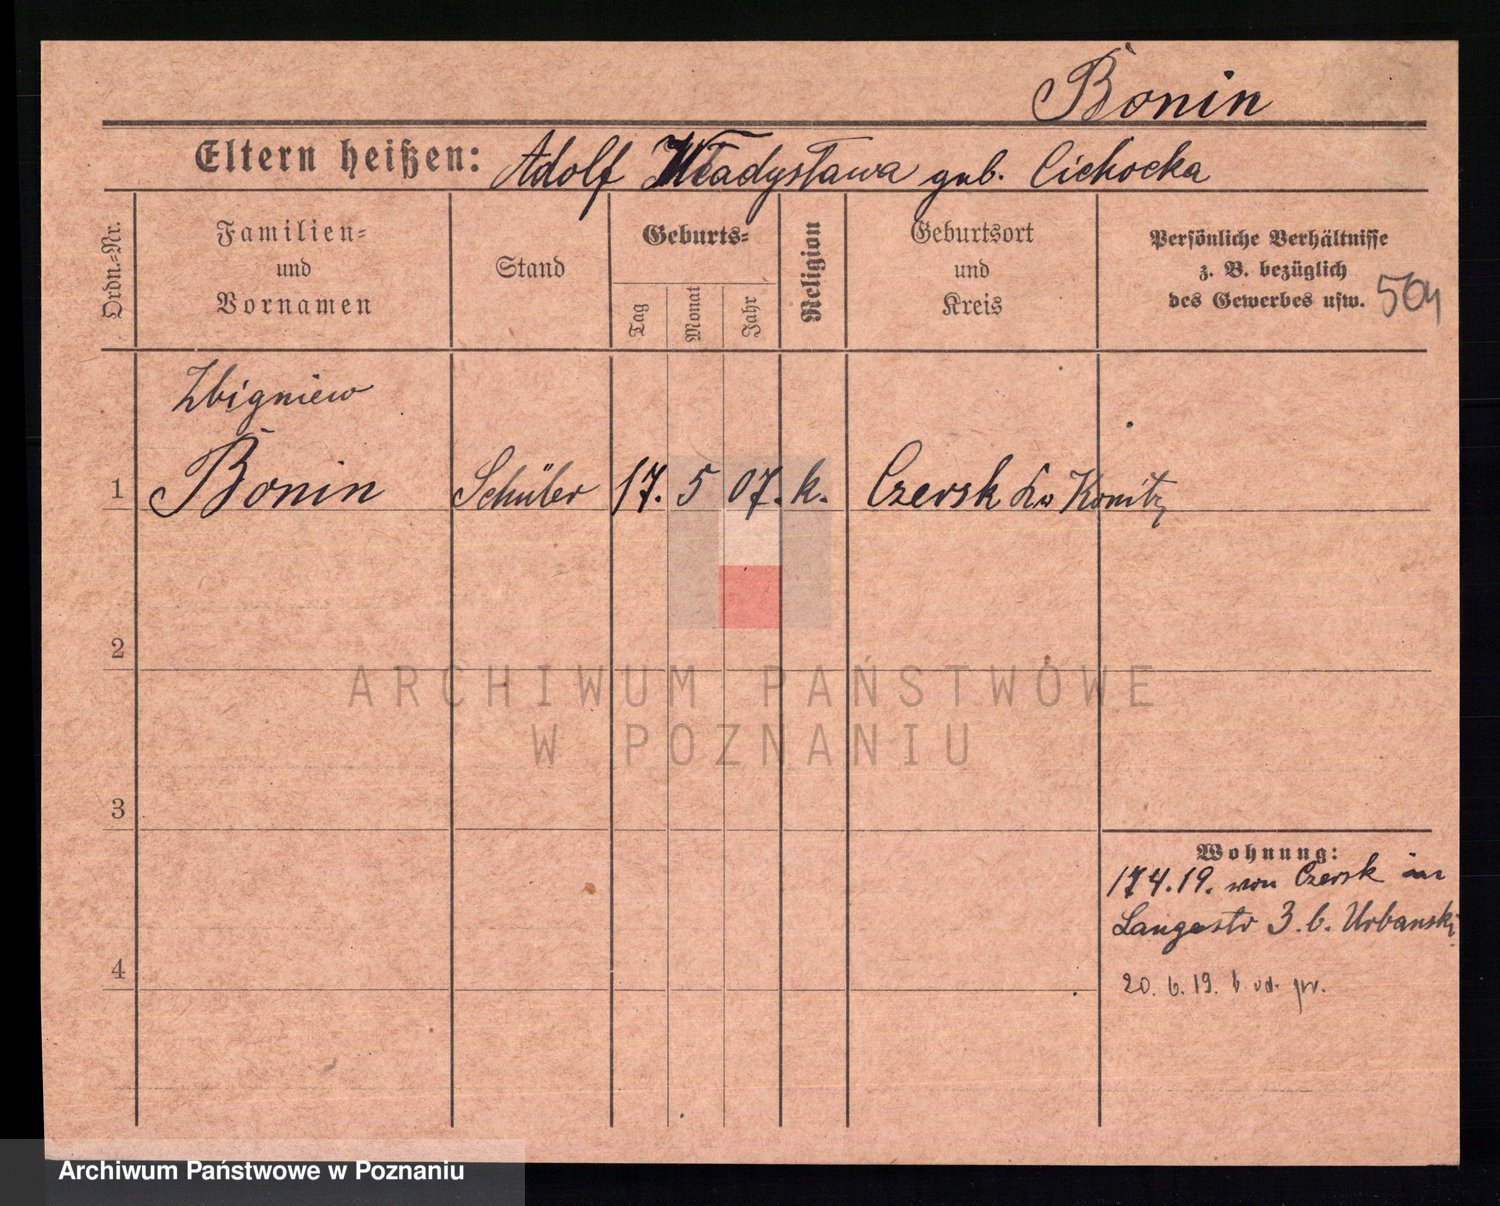 Bonin
Eltern heißen: Adolf Władysława geb. Cichocka
Ordn.-Nr.
Familien-
und
Vornamen
Stand
Geburts-
Tag
Monat
Jahr
Religion
Geburtsort
und
Kreis
Persönliche Verhältnisse
z. B. bezüglich
des Gewerbes usw.
504
Zbigniew
1 Bonin Schüler 17. 5 07. k. Czersk Kr Konitz
2
3
4
Wohnung:
17 4. 19. von Czersk
Langestr 3. b. Urbanski
20. 6. 19.
ARCHIWUM PAŃSTWOWE
W POZNANIU
Archiwum Państwowe w Poznaniu